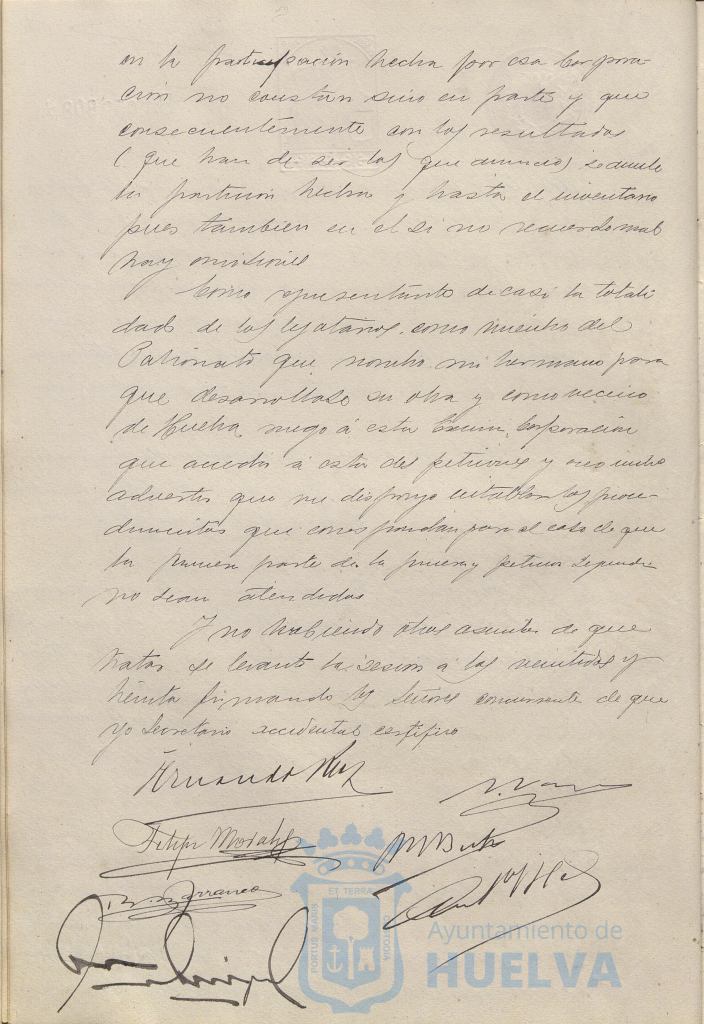 en la participación hecha por esa Corpora-
ción no constan sino en parte y que
consecuentemente con los resultados
(que han de ser los que anuncio) se anule
la partición hecha y hasta el inventario
pues también en el si no recuerdo mal
hay omisiones
Como representante de casi la totali
dad de los legatarios, como miembro del
Patronato que nombro mi hermano para
que desarrollase su obra y como vecino
de Huelva ruego á esta Excma. Corporación
que acceda á estas dos peticiones y
advertir que me dispongo entablar los proce-
dimientos que correspondan para el caso de que
la primera parte de la primera y segunda
no sean atendidas
Y no habiendo otros asuntos de que
tratar se levantó la sesion á las veintidos y
treinta firmando los Señores concurrentes de que
yo Secretario accidental certifico
Felipe Morales
B. Barranco
PORTUS MARIS ET TERRAE CUSTODIA
Ayuntamiento de
HUELVA